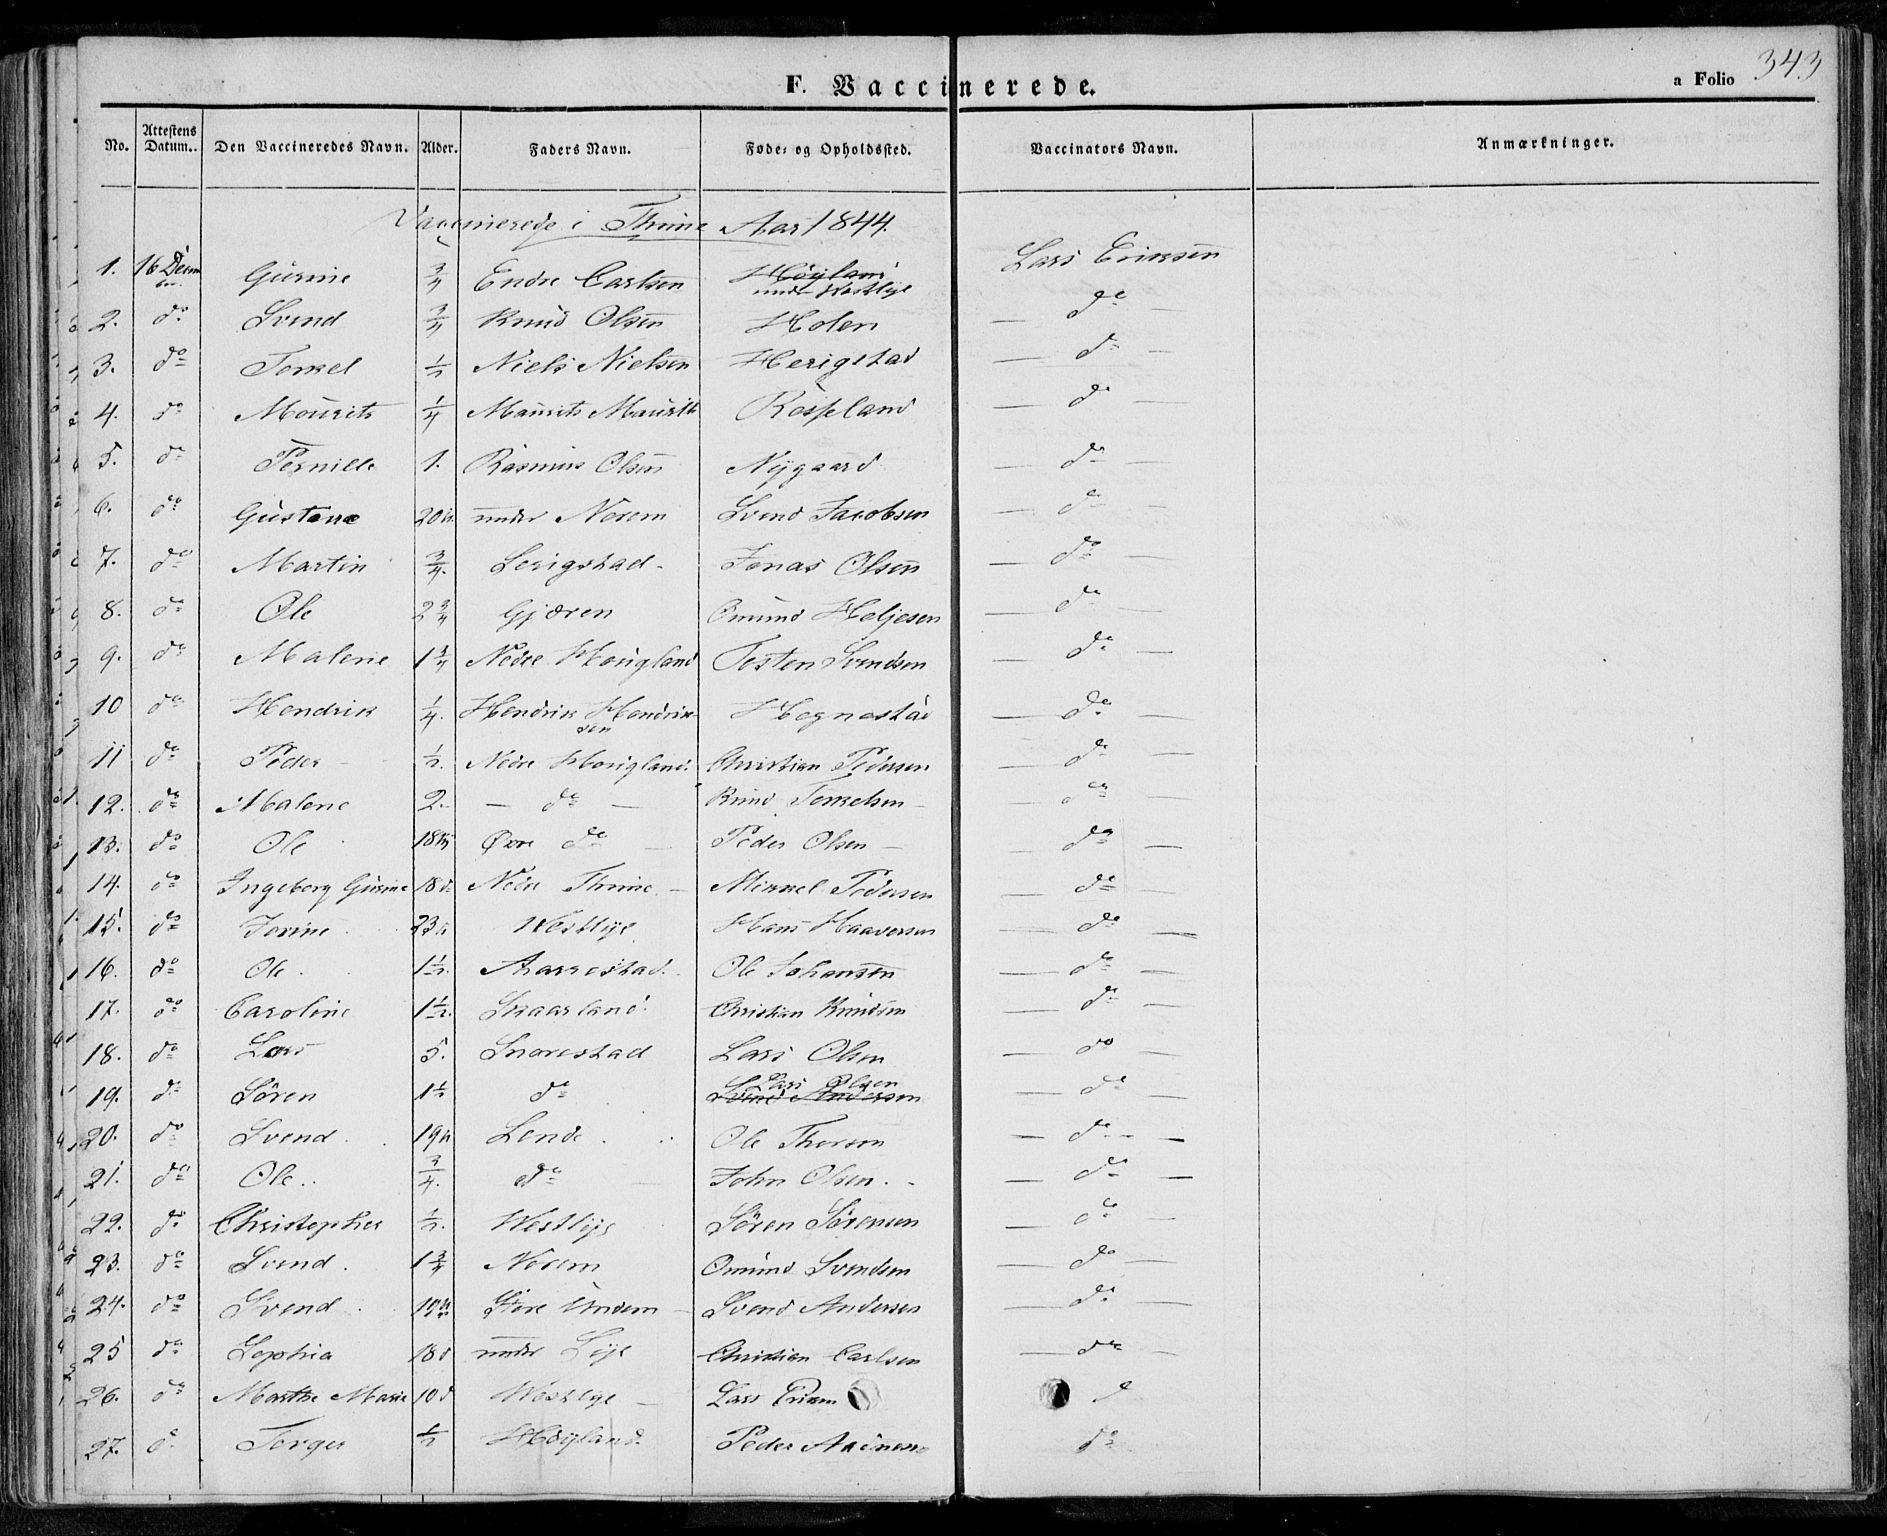 F. Vaccinerede.
a Folio 343
No. Attestens Datum. Den Vaccineredes Navn. Alder. Faders Navn. Føde- og Opholdssted. Vaccinators Navn. Anmærkninger.
Vaccinerede i Thime Aar 1844.
1. 16 Decem Gurine 3/4 Endre Carlsen Høyland under Westlye Lars Eriksen
2. do Svend 3/4 Knud Olsen Holen — do —
3. do Torkel 1/2 Niels Nielsen Herigstad — do —
4. do Mourits 1/4 Maurits Maurits Rosseland — do —
5. do Pernille 1. Rasmus Olsen Nygaard — do —
6. do Gustava 20 under Norem Svend Jacobsen — do —
7. do Martin 3/4. Serigstad Jonas Olsen — do —
8. do Ole 2 3/4 Gjæren Omund Heljesen — do —
9. do Malene 1 3/4 Nedre Houigland Tosten Svendsen — do —
10 do Hendrik 1/4. Hendrik Hendriksen Hegnestad — do —
11 do Peder 1/2. Nedre Houigland Christian Pedersen — do —
12. do Malene 2. — do — Knud Torkelsen — do —
13. do Ole 18 Øvre do — Peder Olsen — do —
14. do Ingeborg Gurine 18 d Nedre Thime Mikkel Pedersen — do —
15. do Jorine 23 Westlye Hans Haaversen — do —
16. do Ole 1 1/2. Aarrestad. Ole Johansen — do —
17. do Caroline 1 1/2. Skaarland Christian Knudsen — do —
18. do Lars 5. Snorestad Lars Olsen — do —
19. do Søren 1 1/2 do Lars Olsen Svend Andersen — do —
20. do Svend 19 Lende Ole Thorsen — do —
21. do Ole 3/4. do John Olsen — do —
22. do Christopher 1/2. Westlye Søren Sørensen — do —
23. do Svend 1 3/4 Norem Omund Svendsen — do —
24. do Svend Store Undem Svend Andersen — do —
25 do Sophia 18 d under Lye Christian Carlsen — do —
26. do Marthe Marie 10 d Westlye Lars
27. do Torger 1/2 Høyland Peder do